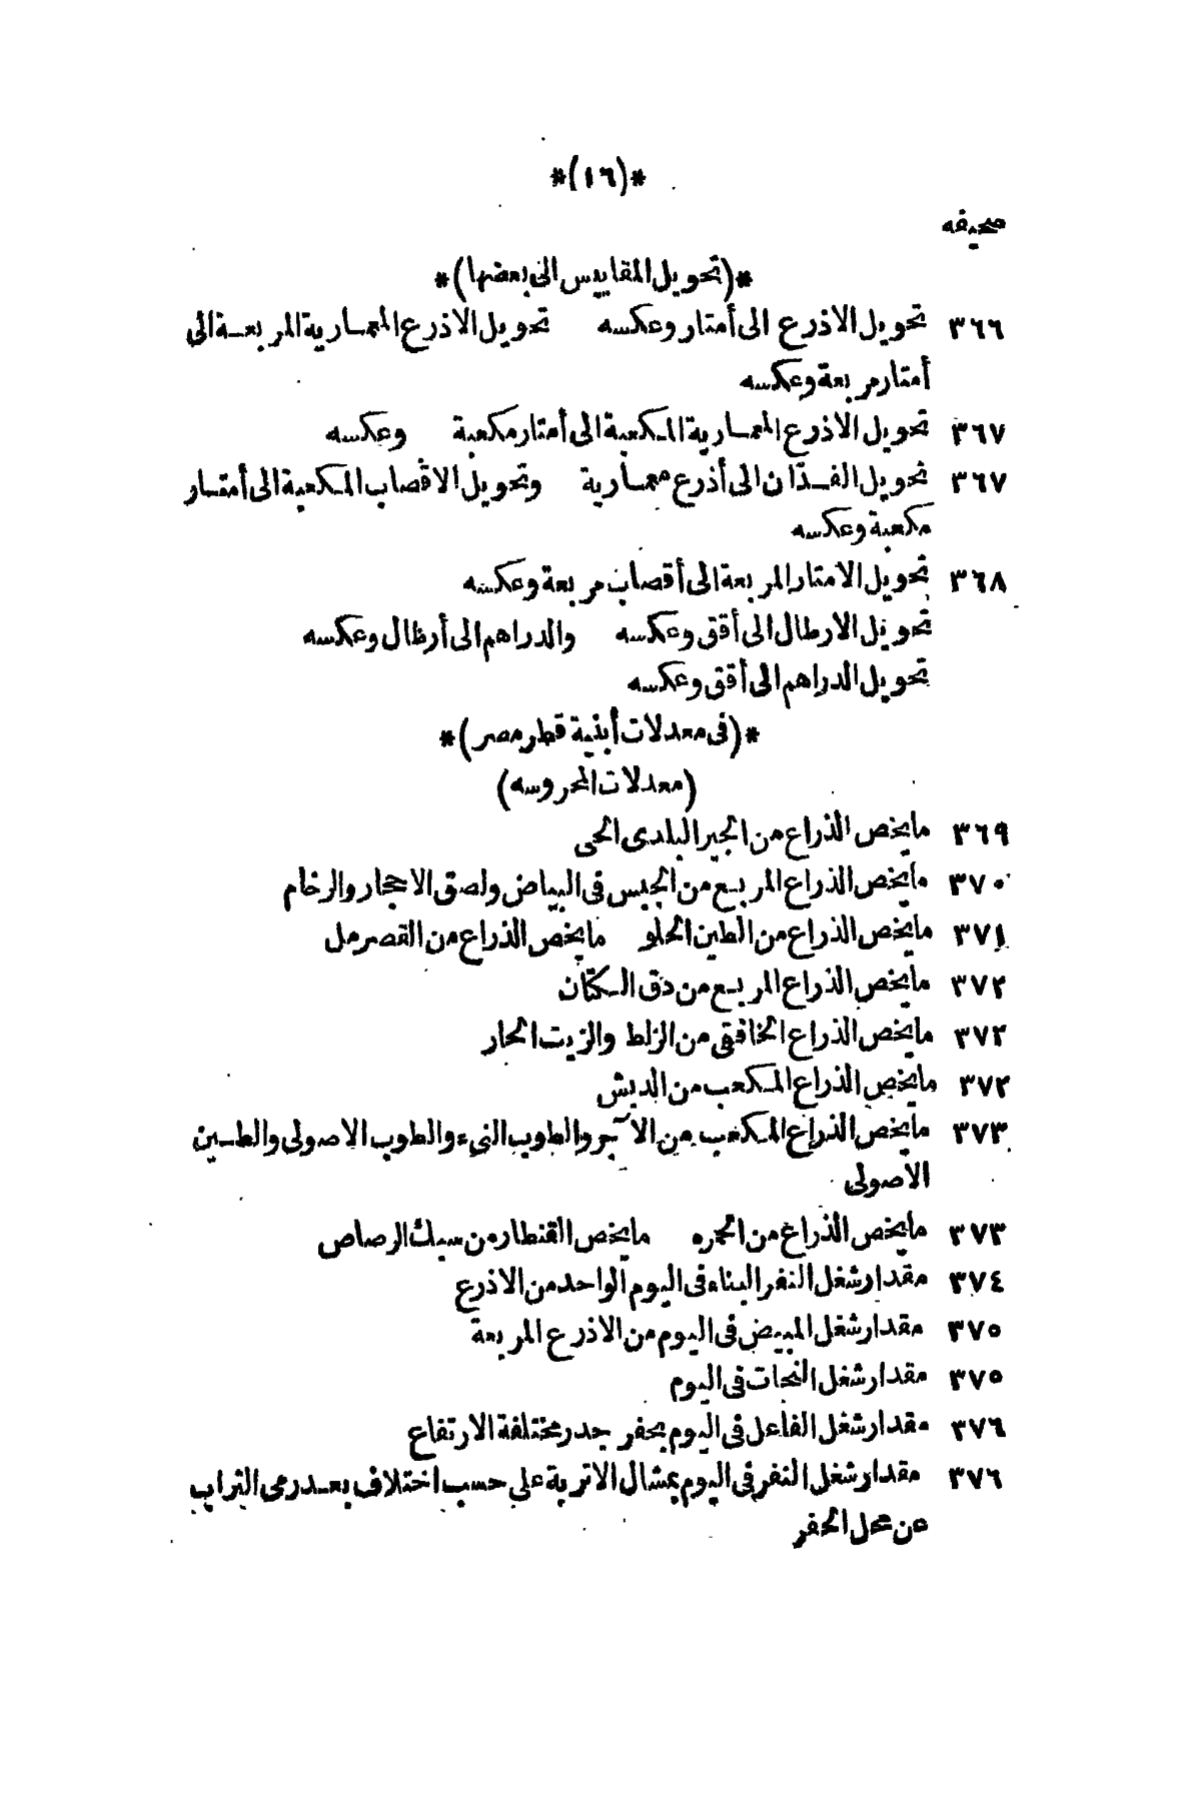 *(١٦)*
صحيفه
*(تحويل المقاييس الى بعضها)*
٣٦٦ تحويل الاذرع الى أمتار وعكسه تحويل الاذرع المعمارية المربعة الى
أمتار مربعة وعكسه
٣٦٧ تحويل الاذرع المعمارية المكعبة الى أمتار مكعبة وعكسه
٣٦٧ تحويل الفدّان الى أذرع معمارية وتحويل الاقصاب المكعبة الى أمتار
مكعبة وعكسه
٣٦٨ تحويل الامتار المربعة الى أقصاب مربعة وعكسه
تحويل الارطال الى أقق وعكسه والدراهم الى أرطال وعكسه
تحويل الدراهم الى أقق وعكسه
*(فى معدلات أبنية قطر مصر)*
(معدلات المحروسه)
٣٦٩ ما يخص الذراع من الجير البلدى الحى
٣٧٠ ما يخص الذراع المربع من الجبس فى البياض ولصق الاحجار والرخام
٣٧١ ما يخص الذراع من الطين الحلو ما يخص الذراع من القصرمل
٣٧٢ ما يخص الذراع المربع من دق الكتان
٣٧٢ ما يخص الذراع الخافقى من الزلط والزيت الحار
٣٧٢ ما يخص الذراع المكعب من الدبش
٣٧٣ ما يخص الذراع المكعب من الآجر والطوب النىء والطوب الاصولى والطين
الاصولى
٣٧٣ ما يخص الذراع من الحمره ما يخص القنطار من سبك الرصاص
٣٧٤ مقدار شغل النفر البناء فى اليوم الواحد من الاذرع
٣٧٥ مقدار شغل المبيض فى اليوم من الاذرع المربعة
٣٧٥ مقدار شغل النحات فى اليوم
٣٧٦ مقدار شغل الفاعل فى اليوم بحفر جدر مختلفة الارتفاع
٣٧٦ مقدار شغل النفر فى اليوم بمشال الاتربة على حسب اختلاف بعد رمى التراب
عن محل الحفر